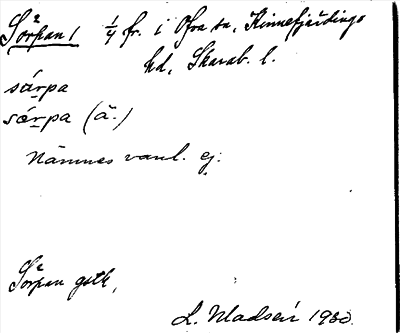 Sörpan 1 1/4 fr. i Ova sn, Kinnefjärdings
hd, Skarab. l.
sárpa
sǽrpa (ä.)
Nämnes vanl. ej.
Sörpan gstk,
L. Madsén 1930.